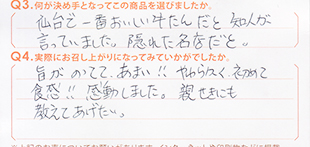 Q3.何が決め手となってこの商品を選びましたか。
仙台で一番おいしい牛たんだと知人が
言っていました。隠れた名店だと。
Q4.実際にお召し上がりになってみていかがでしたか。
旨が のってて、あまい!! やわらかく、初めて
食感!! 感動しました。親せきにも
教えてあげたい。